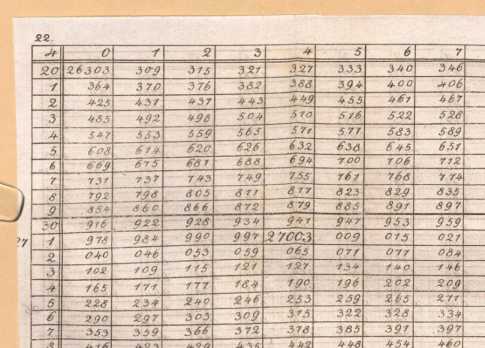 22
4 0 1 2 3 4 5 6 7
20 26303 309 315 321 327 333 340 346
1 364 370 376 382 388 394 400 406
2 425 431 437 443 449 455 461 467
3 485 492 498 504 510 516 522 528
4 547 553 559 565 571 577 583 589
5 608 614 620 626 632 638 645 651
6 669 675 681 688 694 700 706 712
7 731 737 743 749 755 761 768 774
8 792 798 805 811 817 823 829 835
9 854 860 866 872 879 885 891 897
30 916 922 928 934 941 947 953 959
1 978 984 990 997 27003 009 015 021
2 040 046 053 059 065 071 077 084
3 102 109 115 121 127 134 140 146
4 165 171 177 184 190 196 202 209
5 228 234 240 246 253 259 265 271
6 290 297 303 309 315 322 328 334
7 353 359 366 372 378 385 391 397
8 416 423 429 435 442 448 454 460